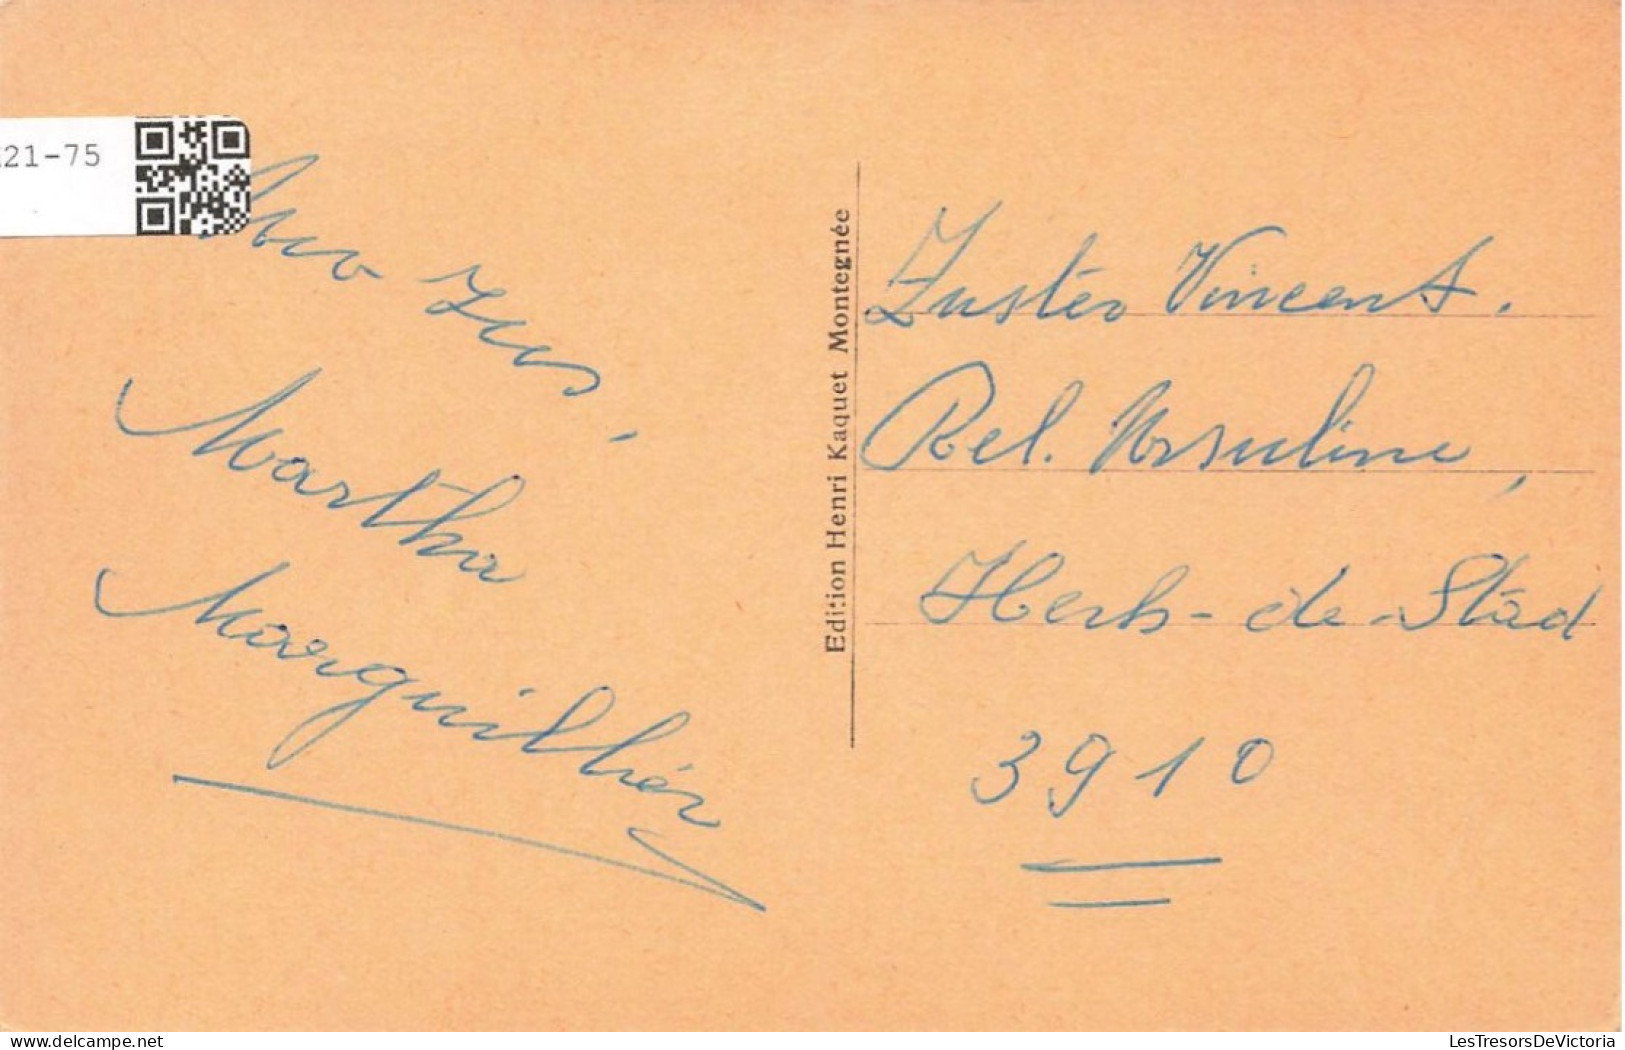 21-75
Zus,
Martha
Marguillier
Edition Henri Kaquet Montegnée
Zuster Vincent.
Rel. Ursuline,
Herk-de-Stad
3910
LesTresorsDeVictoria
delcampe.net